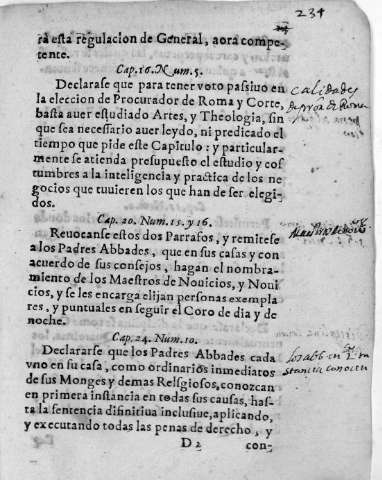 234
ra esta regulacion de General, aora compe-
tente.
Cap. 16. Num. 5.
Declarase que para tener voto passiuo en
la eleccion de Procurador de Roma y Corte,
basta auer estudiado Artes, y Theologia, sin
que sea necessario auer leydo, ni predicado el
tiempo que pide este Capitulo: y particular-
mente se atienda presupuesto el estudio y cos-
tumbres a la inteligencia y practica de los ne-
gocios que tuuieren los que han de ser elegi-
dos.
calidades
de Roma
Cap. 20. Num. 15. y 16.
Reuocanse estos dos Parrafos, y remitese
a los Padres Abbades, que en sus casas y con
acuerdo de sus consejos, hagan el nombra-
miento de los Maestros de Nouicios, y Noui
cios, y se les encarga elijan personas exempla
res, y puntuales en seguir el Coro de dia y de
noche.
Cap. 24. Num. 10.
Declararse que los Padres Abbades cada
vno en su casa, como ordinarios inmediatos
de sus Monges y demas Relsgiosos, conozcan
en primera instancia en todas sus causas, has-
ta la sentencia difinitiua inclusiue, aplicando,
y executando todas las penas de derecho, y
los abb en 1ª in
stancia conocen
D 2 con-